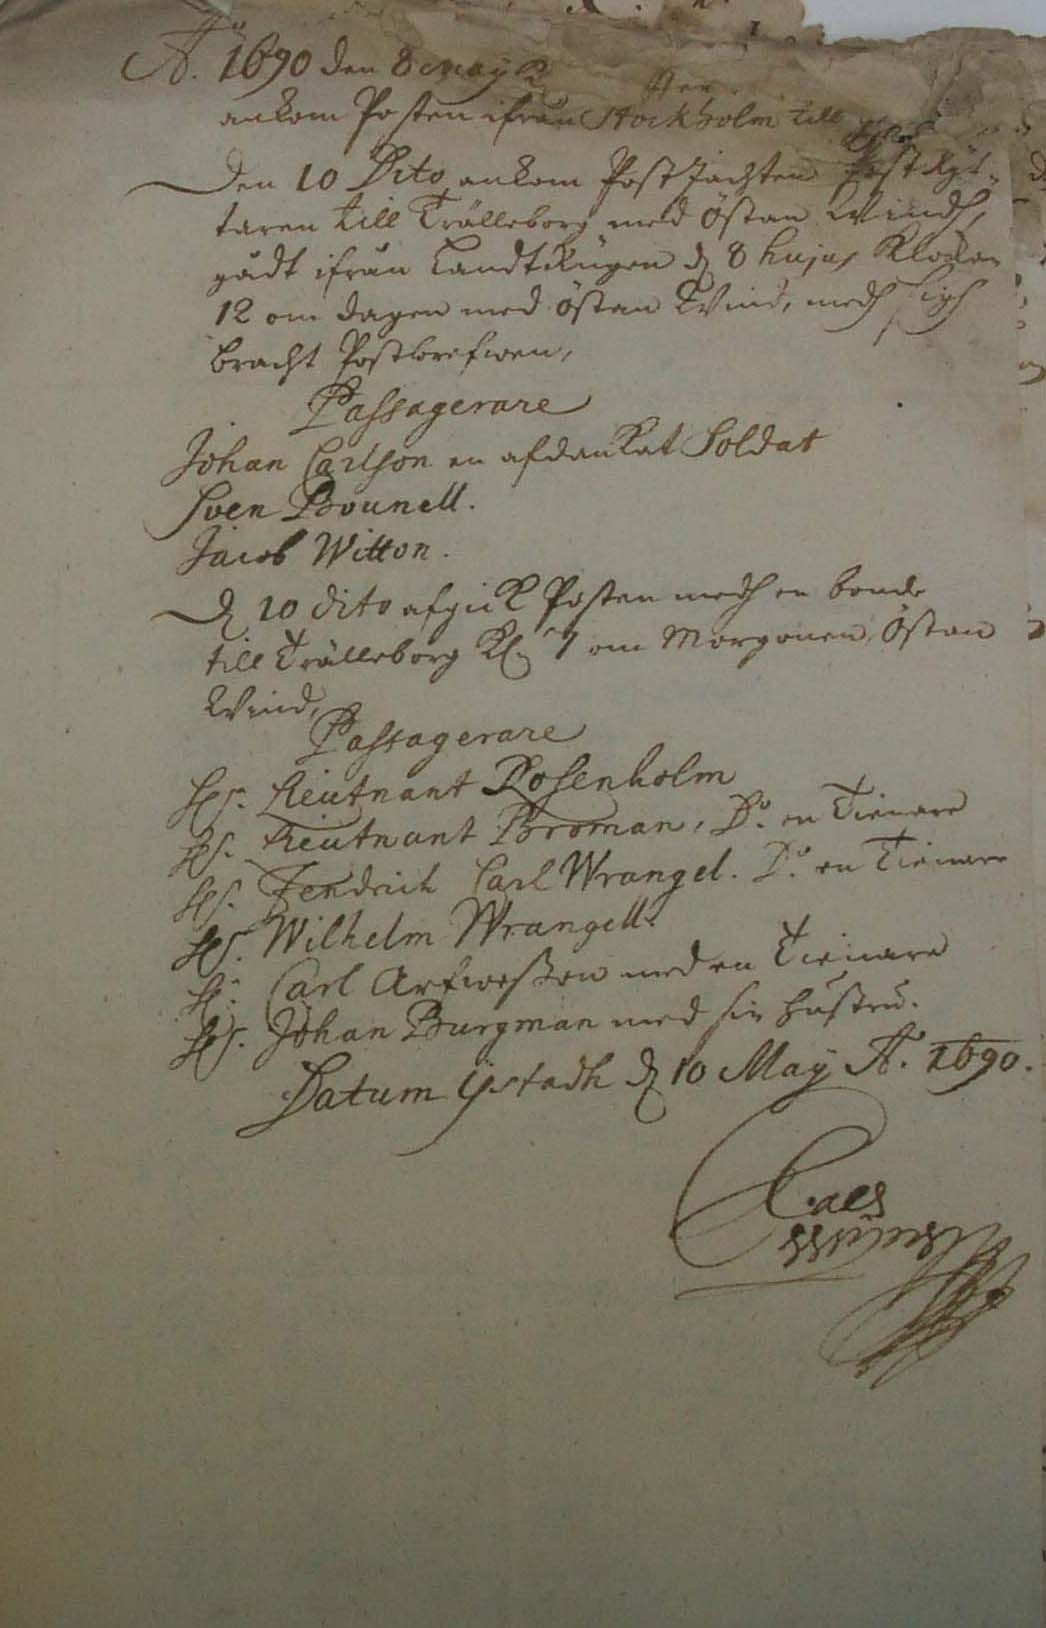 A:o 1690 den 8 May
ankom Posten ifrån Stockholm till
Den 10 Dito ankom PostJachten PostRÿt-
taren till Trälleborg med östan Windh,
gådt ifrån Landt Rügen d. 8 hujus Klockan
12 om dagen med östan Wind, medh sigh
bracht Postbrefwen,
Passagerare
Johan Carlson en afdanKat Soldat
Sven Bounell.
Jacob Witton.
D. 10 dito afgick Posten medh en bonde
till Trälleborg Kl. 7 om Morgonen, östan
Wind,
Passagerare
Hr. Lieutnant Rosenholm
Hr. Lieutnant Broman, D:o en Tienare
Hr. Fendrich Carl Wrangel. D:o en Tienare
Hr. Wilhelm Wrangell.
Hr. Carl Arfweßon med en Tienare
Hr. Johan Burgman med sin hustru.
Datum Ystadh d. 10 Maÿ A:o 1690.